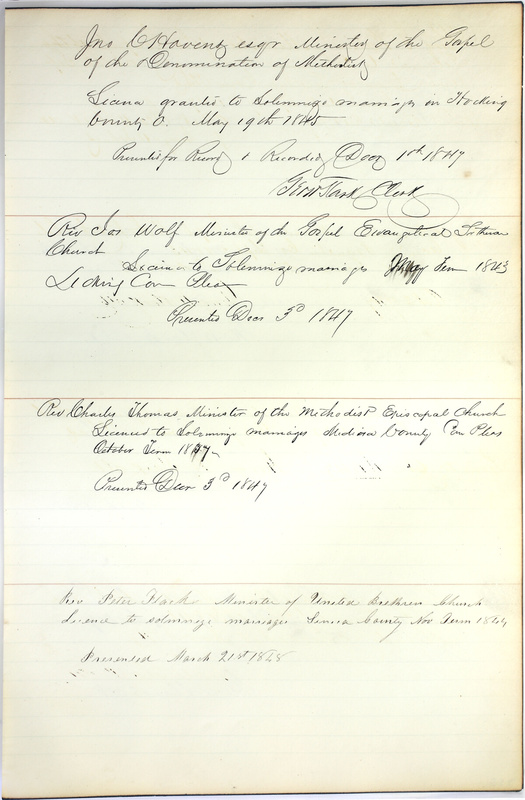 Jno C Havens esqr Minister of the Gospel
of the Denomination of Methodist
Licens granted to Solemnize marriages in Hocking
County O. May 19th 1845
Presented for Record & Recorded Decr 1st 1847
Clerk
Rev Jos Wolf Minister of the Gospel Evangelical Lutheran
Church
License to Solemnize marriages Term 1843
Licking Com Pleas
Presented Decr 3d 1847
Rev Charles Thomas Minister of the Methodist Episcopal Church
Licensed to Solemnize marriages Medina County Com Pleas
October Term 1847
Presented Decr 3d 1847
Rev Peter Minister of United Brethren Church
License to solemnize marriages Seneca County Nov Term 1844
Presented March 21st 1848